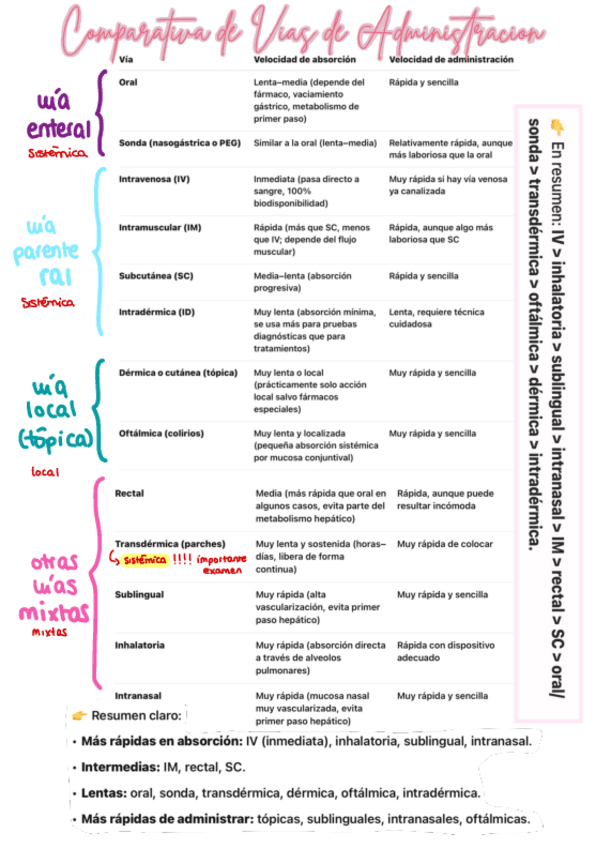 Comparativa de Vías de Administracion
Vía Velocidad de absorción Velocidad de administración
vía
enteral
sistémica
Oral Lenta–media (depende del Rápida y sencilla
fármaco, vaciamiento
gástrico, metabolismo de
primer paso)
Sonda (nasogástrica o PEG) Similar a la oral (lenta–media) Relativamente rápida, aunque
más laboriosa que la oral
vía
parente
ral
sistémica
Intravenosa (IV) Inmediata (pasa directo a Muy rápida si hay vía venosa
sangre, 100% ya canalizada
biodisponibilidad)
Intramuscular (IM) Rápida (más que SC, menos Rápida, aunque algo más
que IV; depende del flujo laboriosa que SC
muscular)
Subcutánea (SC) Media–lenta (absorción Rápida y sencilla
progresiva)
Intradérmica (ID) Muy lenta (absorción mínima, Lenta, requiere técnica
se usa más para pruebas cuidadosa
diagnósticas que para
tratamientos)
vía
local
(tópica)
local
Dérmica o cutánea (tópica) Muy lenta o local Muy rápida y sencilla
(prácticamente solo acción
local salvo fármacos
especiales)
Oftálmica (colirios) Muy lenta y localizada Muy rápida y sencilla
(pequeña absorción sistémica
por mucosa conjuntival)
otras
vías
mixtas
mixtas
Rectal Media (más rápida que oral en Rápida, aunque puede
algunos casos, evita parte del resultar incómoda
metabolismo hepático)
Transdérmica (parches) Muy lenta y sostenida (horas– Muy rápida de colocar
días, libera de forma
continua)
sistémica !!!! importante
examen
Sublingual Muy rápida (alta Muy rápida y sencilla
vascularización, evita primer
paso hepático)
Inhalatoria Muy rápida (absorción directa Rápida con dispositivo
a través de alveolos adecuado
pulmonares)
Intranasal Muy rápida (mucosa nasal Muy rápida y sencilla
muy vascularizada, evita
primer paso hepático)
👉 En resumen: IV > inhalatoria > sublingual > intranasal > IM > rectal > SC > oral/
sonda > transdérmica > oftálmica > dérmica > intradérmica.
👉 Resumen claro:
• Más rápidas en absorción: IV (inmediata), inhalatoria, sublingual, intranasal.
• Intermedias: IM, rectal, SC.
• Lentas: oral, sonda, transdérmica, dérmica, oftálmica, intradérmica.
• Más rápidas de administrar: tópicas, sublinguales, intranasales, oftálmicas.